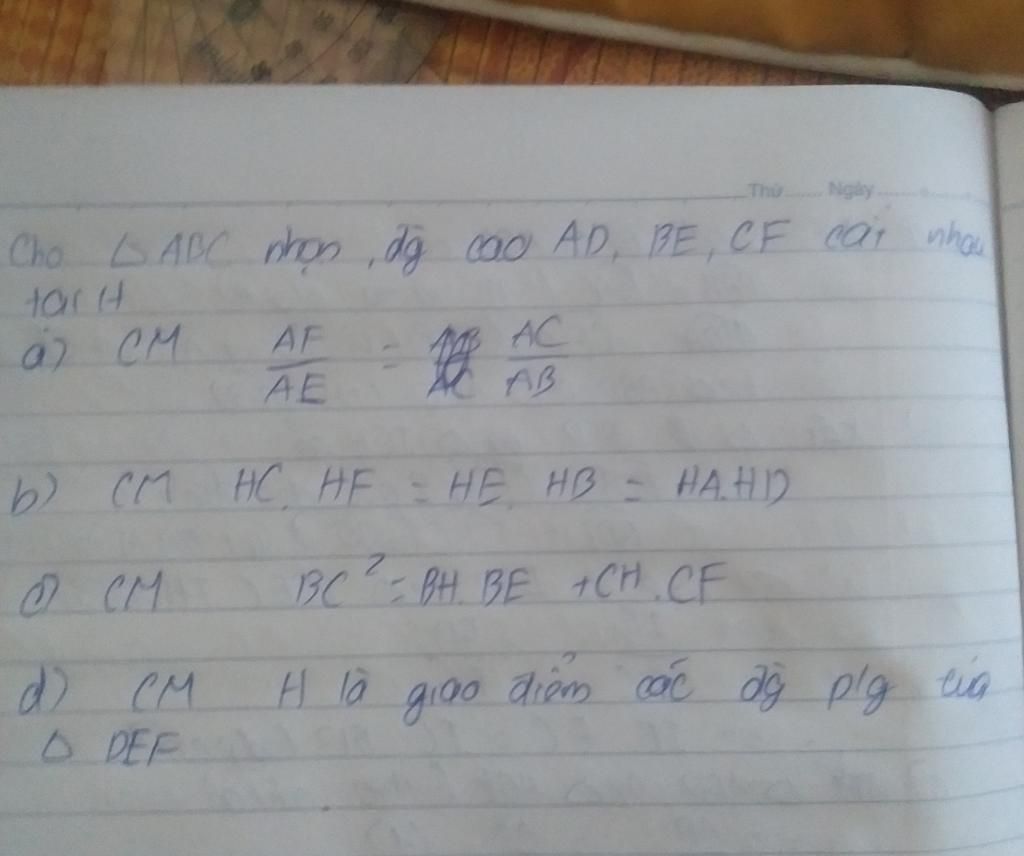 Thứ Ngày
Cho △ ABC nhọn, đg cao AD, BE, CF cắt nhau
tại H
a) CM AF/AE = AC/AB
b) CM HC. HF = HE. HB = HA.HD
c) CM BC² = BH. BE + CH. CF
d) CM H là giao điểm các đg p/g của
△ DEF